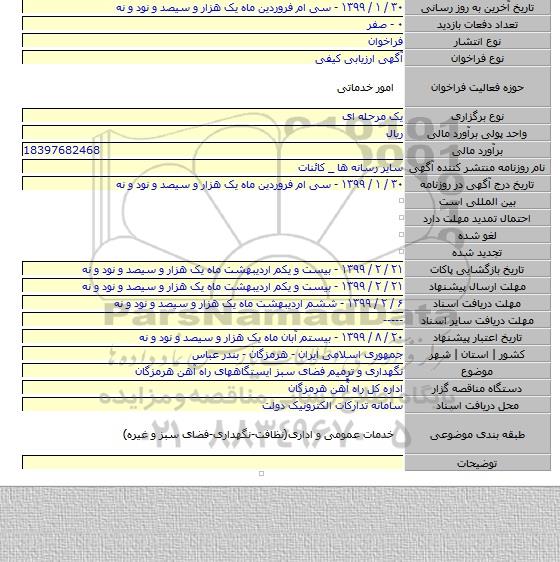 تاریخ آخرین به روز رسانی ۳۰ / ۱ / ۱۳۹۹ - سی ام فروردین ماه یک هزار و سیصد و نود و نه
تعداد دفعات بازدید ۰ - صفر
نوع انتشار فراخوان
نوع فراخوان آگهی ارزیابی کیفی
حوزه فعالیت فراخوان امور خدماتی
نوع برگزاری یک مرحله ای
واحد پولی برآورد مالی ریال
برآورد مالی 18397682468
نام روزنامه منتشر کننده آگهی سایر رسانه ها _ کائنات
تاریخ درج آگهی در روزنامه ۳۰ / ۱ / ۱۳۹۹ - سی ام فروردین ماه یک هزار و سیصد و نود و نه
بین المللی است
احتمال تمدید مهلت دارد
لغو شده
تجدید شده
تاریخ بازگشایی پاکات ۲۱ / ۲ / ۱۳۹۹ - بیست و یکم اردیبهشت ماه یک هزار و سیصد و نود و نه
مهلت ارسال پیشنهاد ۲۱ / ۲ / ۱۳۹۹ - بیست و یکم اردیبهشت ماه یک هزار و سیصد و نود و نه
مهلت دریافت اسناد ۶ / ۲ / ۱۳۹۹ - ششم اردیبهشت ماه یک هزار و سیصد و نود و نه
مهلت دریافت سایر اسناد -----
تاریخ اعتبار پیشنهاد ۲۰ / ۸ / ۱۳۹۹ - بیستم آبان ماه یک هزار و سیصد و نود و نه
کشور | استان | شهر جمهوری اسلامی ایران - هرمزگان - بندر عباس
موضوع نگهداری و ترمیم فضای سبز ایستگاههای راه آهن هرمزگان
دستگاه مناقصه گزار اداره کل راه آهن هرمزگان
محل دریافت اسناد سامانه تدارکات الکترونیک دولت
طبقه بندی موضوعی خدمات عمومی و اداری(نظافت-نگهداری-فضای سبز و غیره)
توضیحات
ParsNamadData
۰۲۱-۸۸۳۴۹۶۷۰-۵